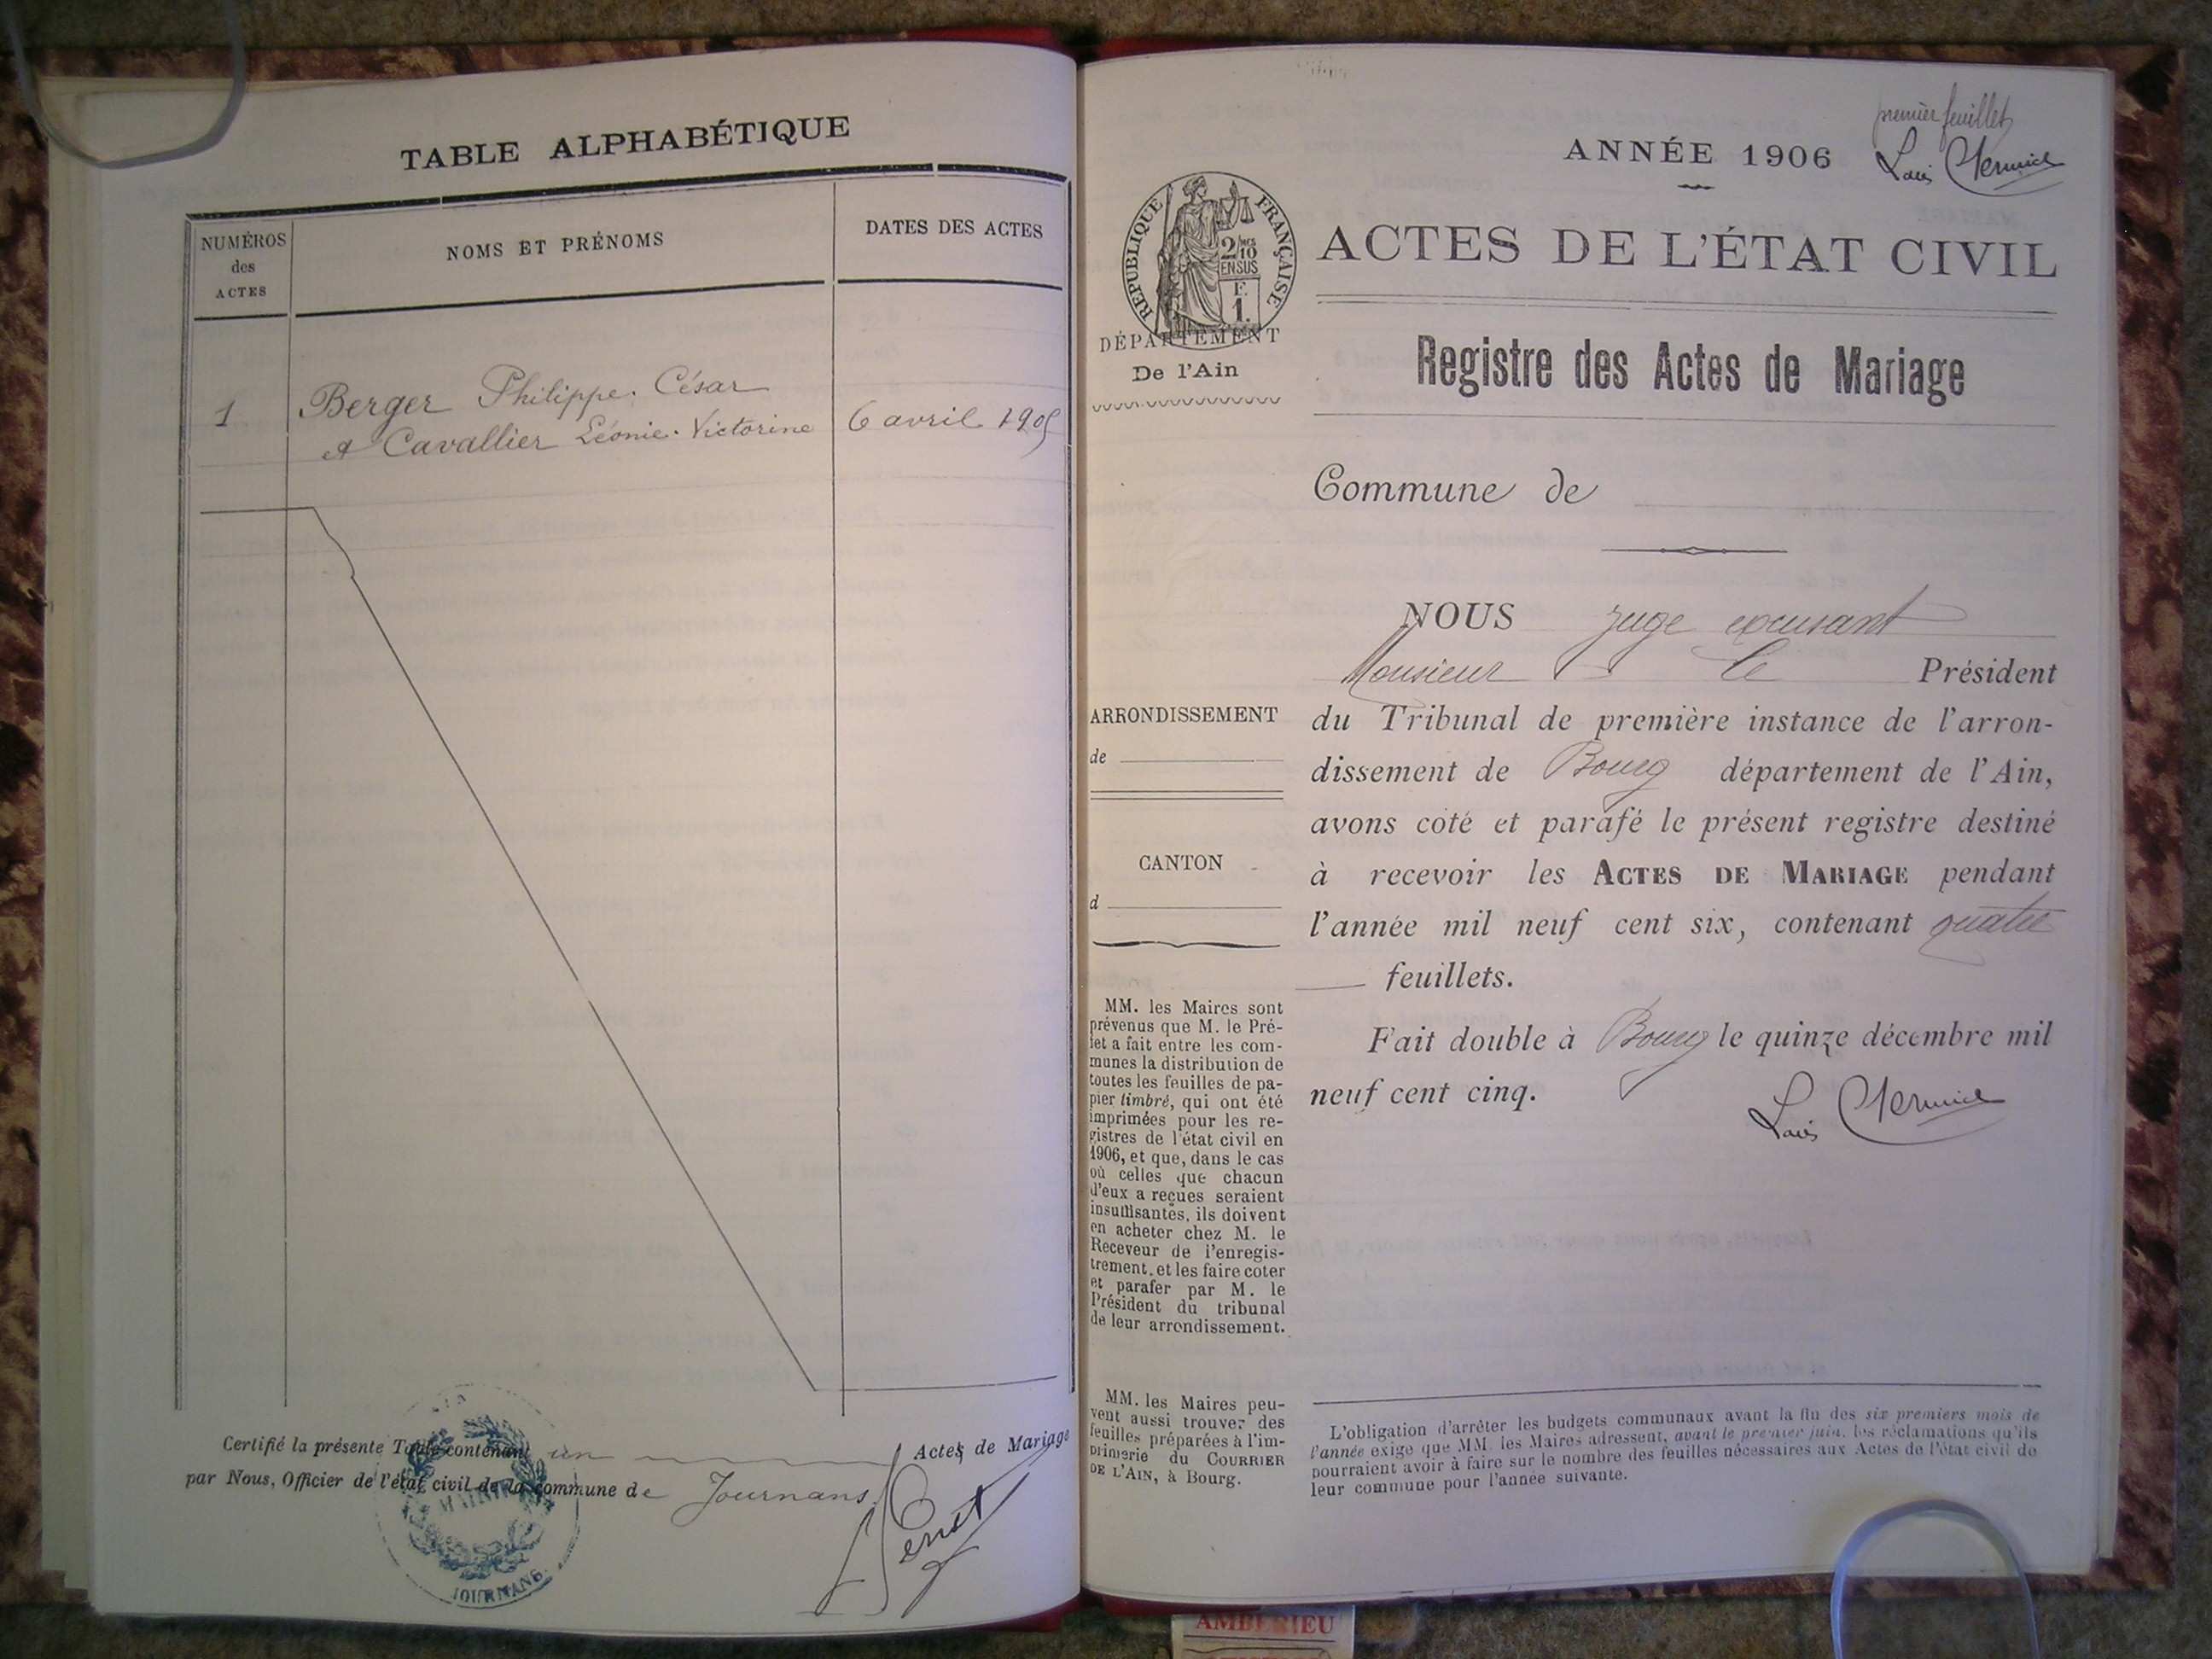 TABLE ALPHABÉTIQUE
NUMÉROS
des
ACTES
NOMS ET PRÉNOMS
DATES DES ACTES
1
Berger Philippe. César
et Cavallier Léonie. Victorine
6 avril 1905
Certifié la présente Table contenant un Actes de Mariage
par Nous, Officier de l'état civil de la commune de Journans.
MAIRIE
JOURNANS
premier feuillet
ANNÉE 1906
Louis
RÉPUBLIQUE FRANÇAISE
2/10
EN SUS
F.
1.
ACTES DE L'ÉTAT CIVIL
DÉPARTEMENT
De l'Ain
Registre des Actes de Mariage
Commune de
NOUS juge excusant
Monsieur Le Président
du Tribunal de première instance de l'arron-
dissement de Bourg département de l'Ain,
avons coté et parafé le présent registre destiné
à recevoir les ACTES DE MARIAGE pendant
l'année mil neuf cent six, contenant quatre
feuillets.
Fait double à Bourg le quinze décembre mil
neuf cent cinq.
Louis
ARRONDISSEMENT
de
CANTON
d
MM. les Maires sont
prévenus que M. le Pré-
fet a fait entre les com-
munes la distribution de
toutes les feuilles de pa-
pier timbré, qui ont été
imprimées pour les re-
gistres de l'état civil en
1906, et que, dans le cas
où celles que chacun
d'eux a reçues seraient
insuffisantes, ils doivent
en acheter chez M. le
Receveur de l'enregis-
trement, et les faire coter
et parafer par M. le
Président du tribunal
de leur arrondissement.
MM. les Maires peu-
vent aussi trouver des
feuilles préparées à l'im-
primerie du COURRIER
DE L'AIN, à Bourg.
L'obligation d'arrêter les budgets communaux avant la fin des six premiers mois de
l'année exige que MM. les Maires adressent, avant le premier juin, les réclamations qu'ils
pourraient avoir à faire sur le nombre des feuilles nécessaires aux Actes de l'état civil de
leur commune pour l'année suivante.
AMBERIEU